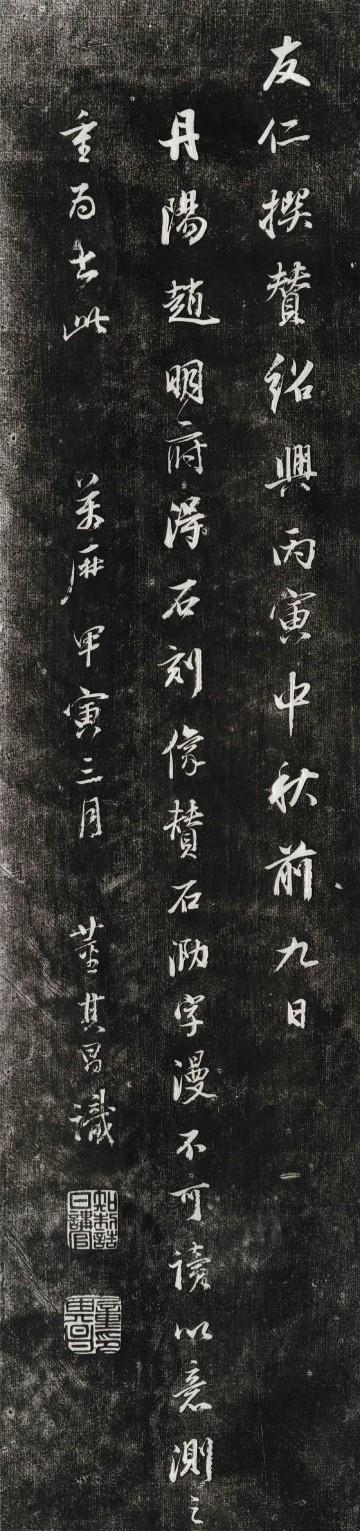 友仁撰贊紹興丙寅中秋前九日
丹陽趙明府得石刻像贊石泐字漫不可讀以意測之
重爲書此 萬曆甲寅三月 董其昌識
知制誥日講官